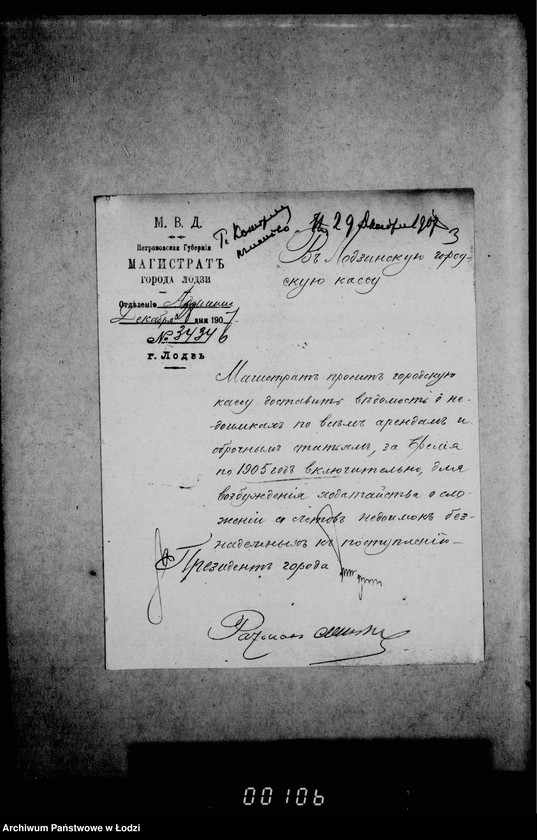 М. В. Д.
Петроковская Губернія
МАГИСТРАТЪ
ГОРОДА ЛОДЗИ
Отдѣленіе Админ
Декабря дня 1907
№ 34346
г. Лодзь
29 Декабря 1907
3
Въ Лодзинскую город-
скую кассу
Магистратъ проситъ городскую
кассу доставить вѣдомость о не-
доимкахъ по всѣмъ арендам и
оброчным статьям, за время
по 1905 годъ включительно, для
возбужденія ходатайства о сло-
женіи со счетовъ недоимокъ без-
надежныхъ къ поступленію
Президентъ города
00106
Archiwum Państwowe w Łodzi